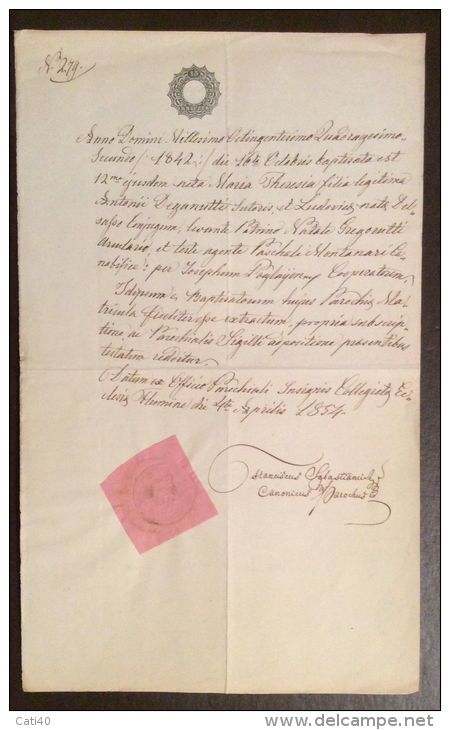 N. 279.
Anno Domini Millesimo Octingentesimo Quadragesimo
Secundo /: 1842 :/ die 16ta Octobris baptizata est
12ma ejusdem nata Maria Theresia filia legitima
Antonii Deganutti Sutoris, et Ludovicæ nata Del-
sasso Conjugum, levante Patrino Natale Gregorutti
et teste agente Paschali Montanari
per Josephum Cooperatorem
Idipsum e Baptizatorum hujus Parochiæ Ma-
tricula fideliter esse extractum, propria subscrip-
tione, ac Parochialis Sigilli appositione præsentibus
testatum redditur.
Datum ex Officio Parochiali Insignis Collegiatæ Ec-
clesiæ Flumine die 4ta Aprilis 1854.
Canonicus Parochus
Cati40
www.delcampe.net